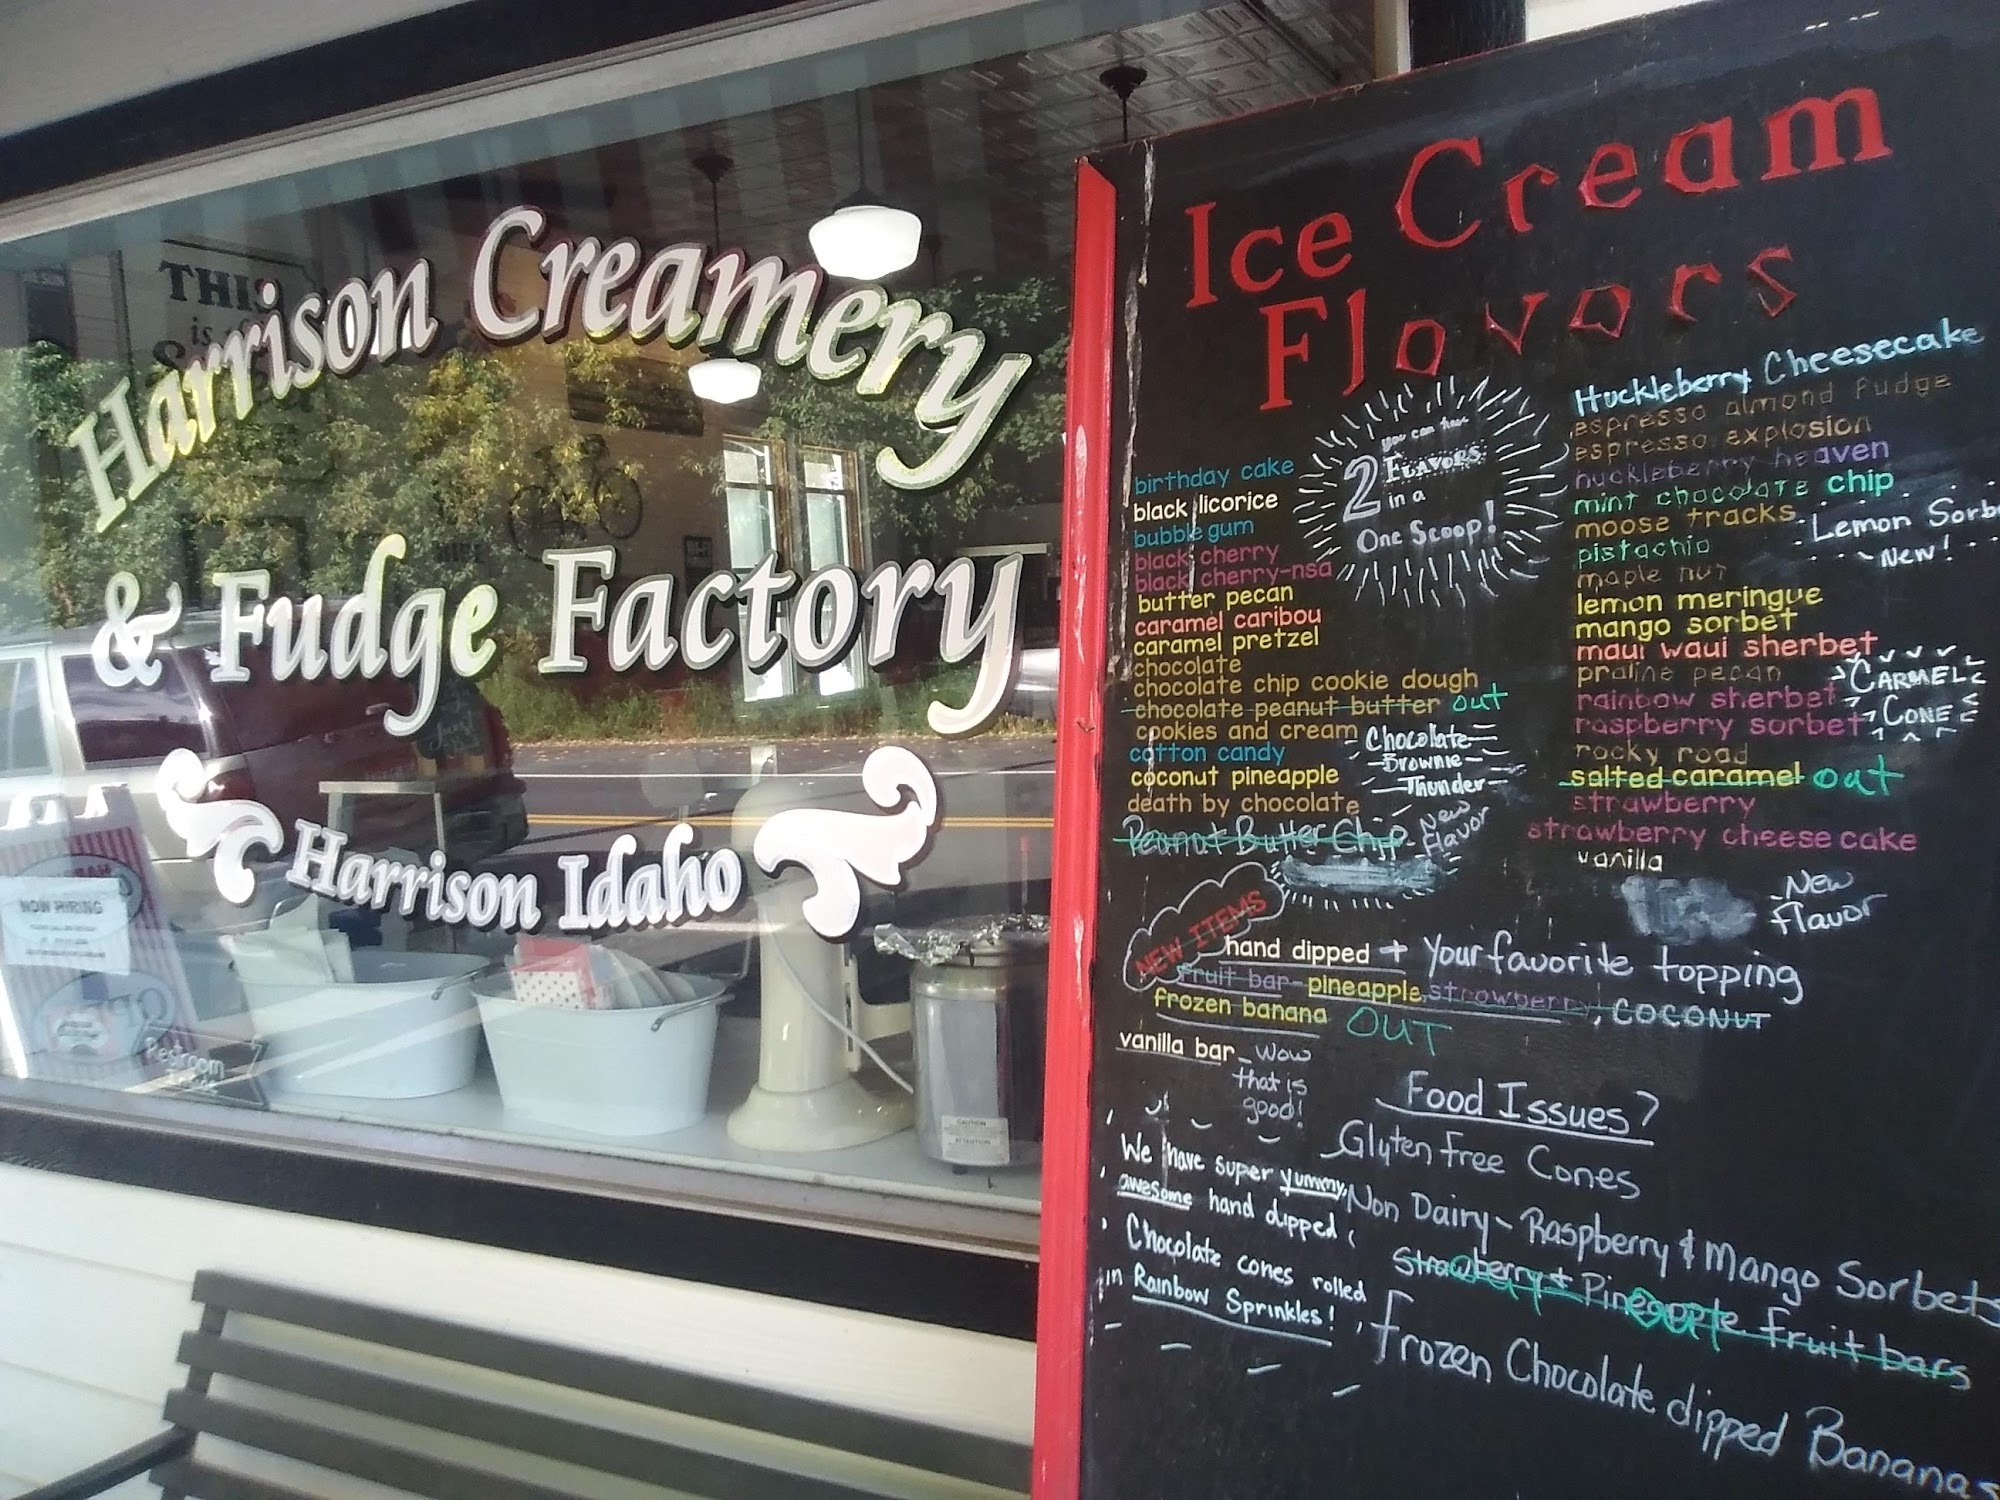 THIS
is
Harrison Creamery
& Fudge Factory
Harrison Idaho
NOW HIRING
Restroom
CAUTION
ATTENTION
Ice Cream
Flavors
you can have
2 FLAVORS
in a
One Scoop!
birthday cake
black licorice
bubble gum
black cherry
black cherry-nsa
butter pecan
caramel caribou
caramel pretzel
chocolate
chocolate chip cookie dough
chocolate peanut butter out
cookies and cream
cotton candy
coconut pineapple
death by chocolate
Peanut Butter Chip - New
Flavor
Chocolate
Brownie
Thunder
Huckleberry Cheesecake
espresso almond fudge
espresso explosion
huckleberry heaven
mint chocolate chip
moose tracks
pistachio
maple nut
lemon meringue
mango sorbet
maui waui sherbet
praline pecan
rainbow sherbet
raspberry sorbet
rocky road
salted caramel out
strawberry
strawberry cheese cake
vanilla
Lemon Sorbe
New!
CARMEL
CONE
New
flavor
NEW ITEMS
hand dipped + your favorite topping
fruit bar-pineapple, strawberry, COCONUT
frozen banana OUT
vanilla bar - Wow
that is
good!
We have super yummy,
awesome hand dipped
Chocolate cones rolled
in Rainbow Sprinkles!
Food Issues?
Glyten Free Cones
Non Dairy - Raspberry & Mango Sorbets
Strawberry & Pineapple Fruit bars
out
Frozen Chocolate dipped Bananas